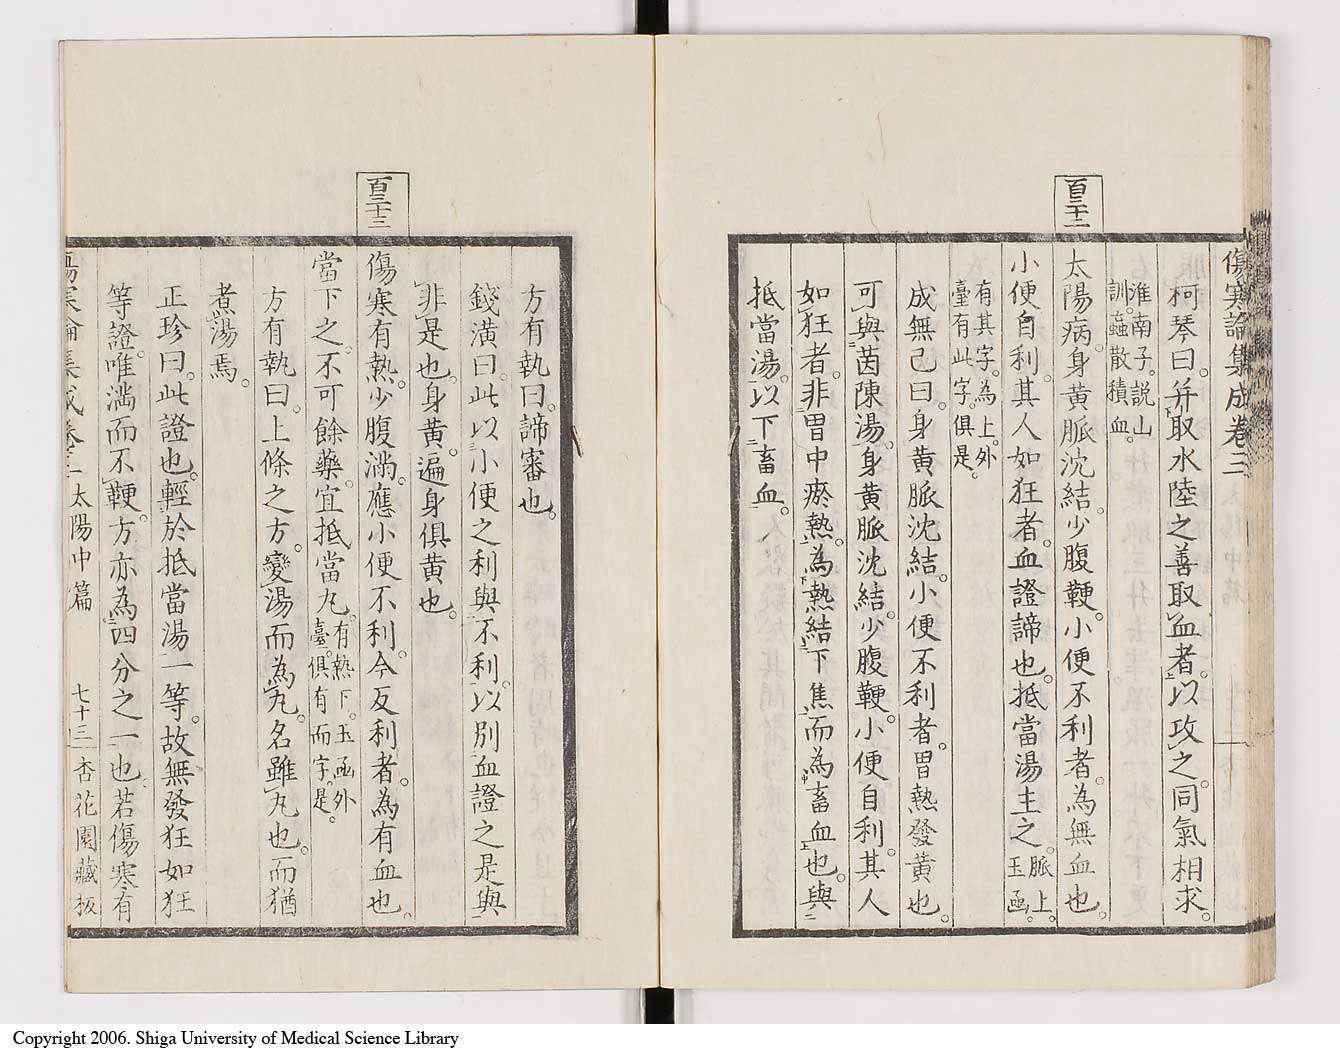 百三十二
傷寒論集成卷三
柯琴曰。并取水陸之善取血者。以攻之。同氣相求。
淮南子。說山
訓。蝱散積血。
太陽病。身黃脈沈結。少腹鞕。小便不利者。為無血也。
小便自利。其人如狂者。血證諦也。抵當湯主之。脈上。
玉函。
有其字。為上。外
臺有此字。俱是。
成無己曰。身黃脈沈結。小便不利者。胃熱發黃也。
可與茵陳湯。身黃脈沈結。少腹鞕。小便自利。其人
如狂者。非胃中瘀熱。為熱結下焦而為畜血也。與
抵當湯。以下畜血。
百三十三
方有執曰。諦審也。
錢潢曰。此以小便之利與不利。以別血證之是與
非是也。身黃。遍身俱黃也。
傷寒有熱。少腹滿。應小便不利。今反利者。為有血也。
當下之。不可餘藥。宜抵當丸。有熱下。玉函外
臺。俱有而字。是。
方有執曰。上條之方。變湯而為丸。名雖丸也。而猶
煮湯焉。
正珍曰。此證也。輕於抵當湯一等。故無發狂如狂
等證。唯滿而不鞕。方亦為四分之一也。若傷寒有
傷寒論集成卷三 太陽中篇 七十三 杏花園藏板
Copyright 2006. Shiga University of Medical Science Library